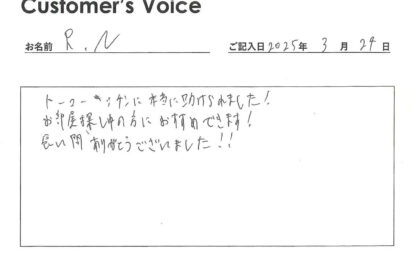 Customer's Voice
お名前 R.N ご記入日 2025年 3月 24日
に本当に助けられました!
お部屋探し中の方におすすめできます!
長い間ありがとうございました!!